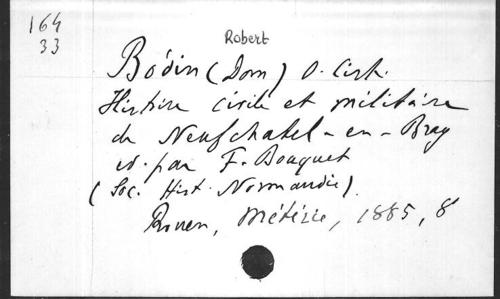 164
33
Robert
Bodin (Dom) O. Cist.
Histoire civile et militaire
de Neufchatel-en-Bray
éd. par F. Bouquet
(Soc. Hist. Normandie).
Rouen, Métérie, 1885, 8